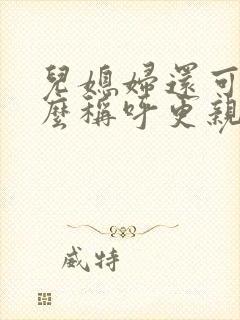 兒媳婦還可
麼稱呼更親
威特